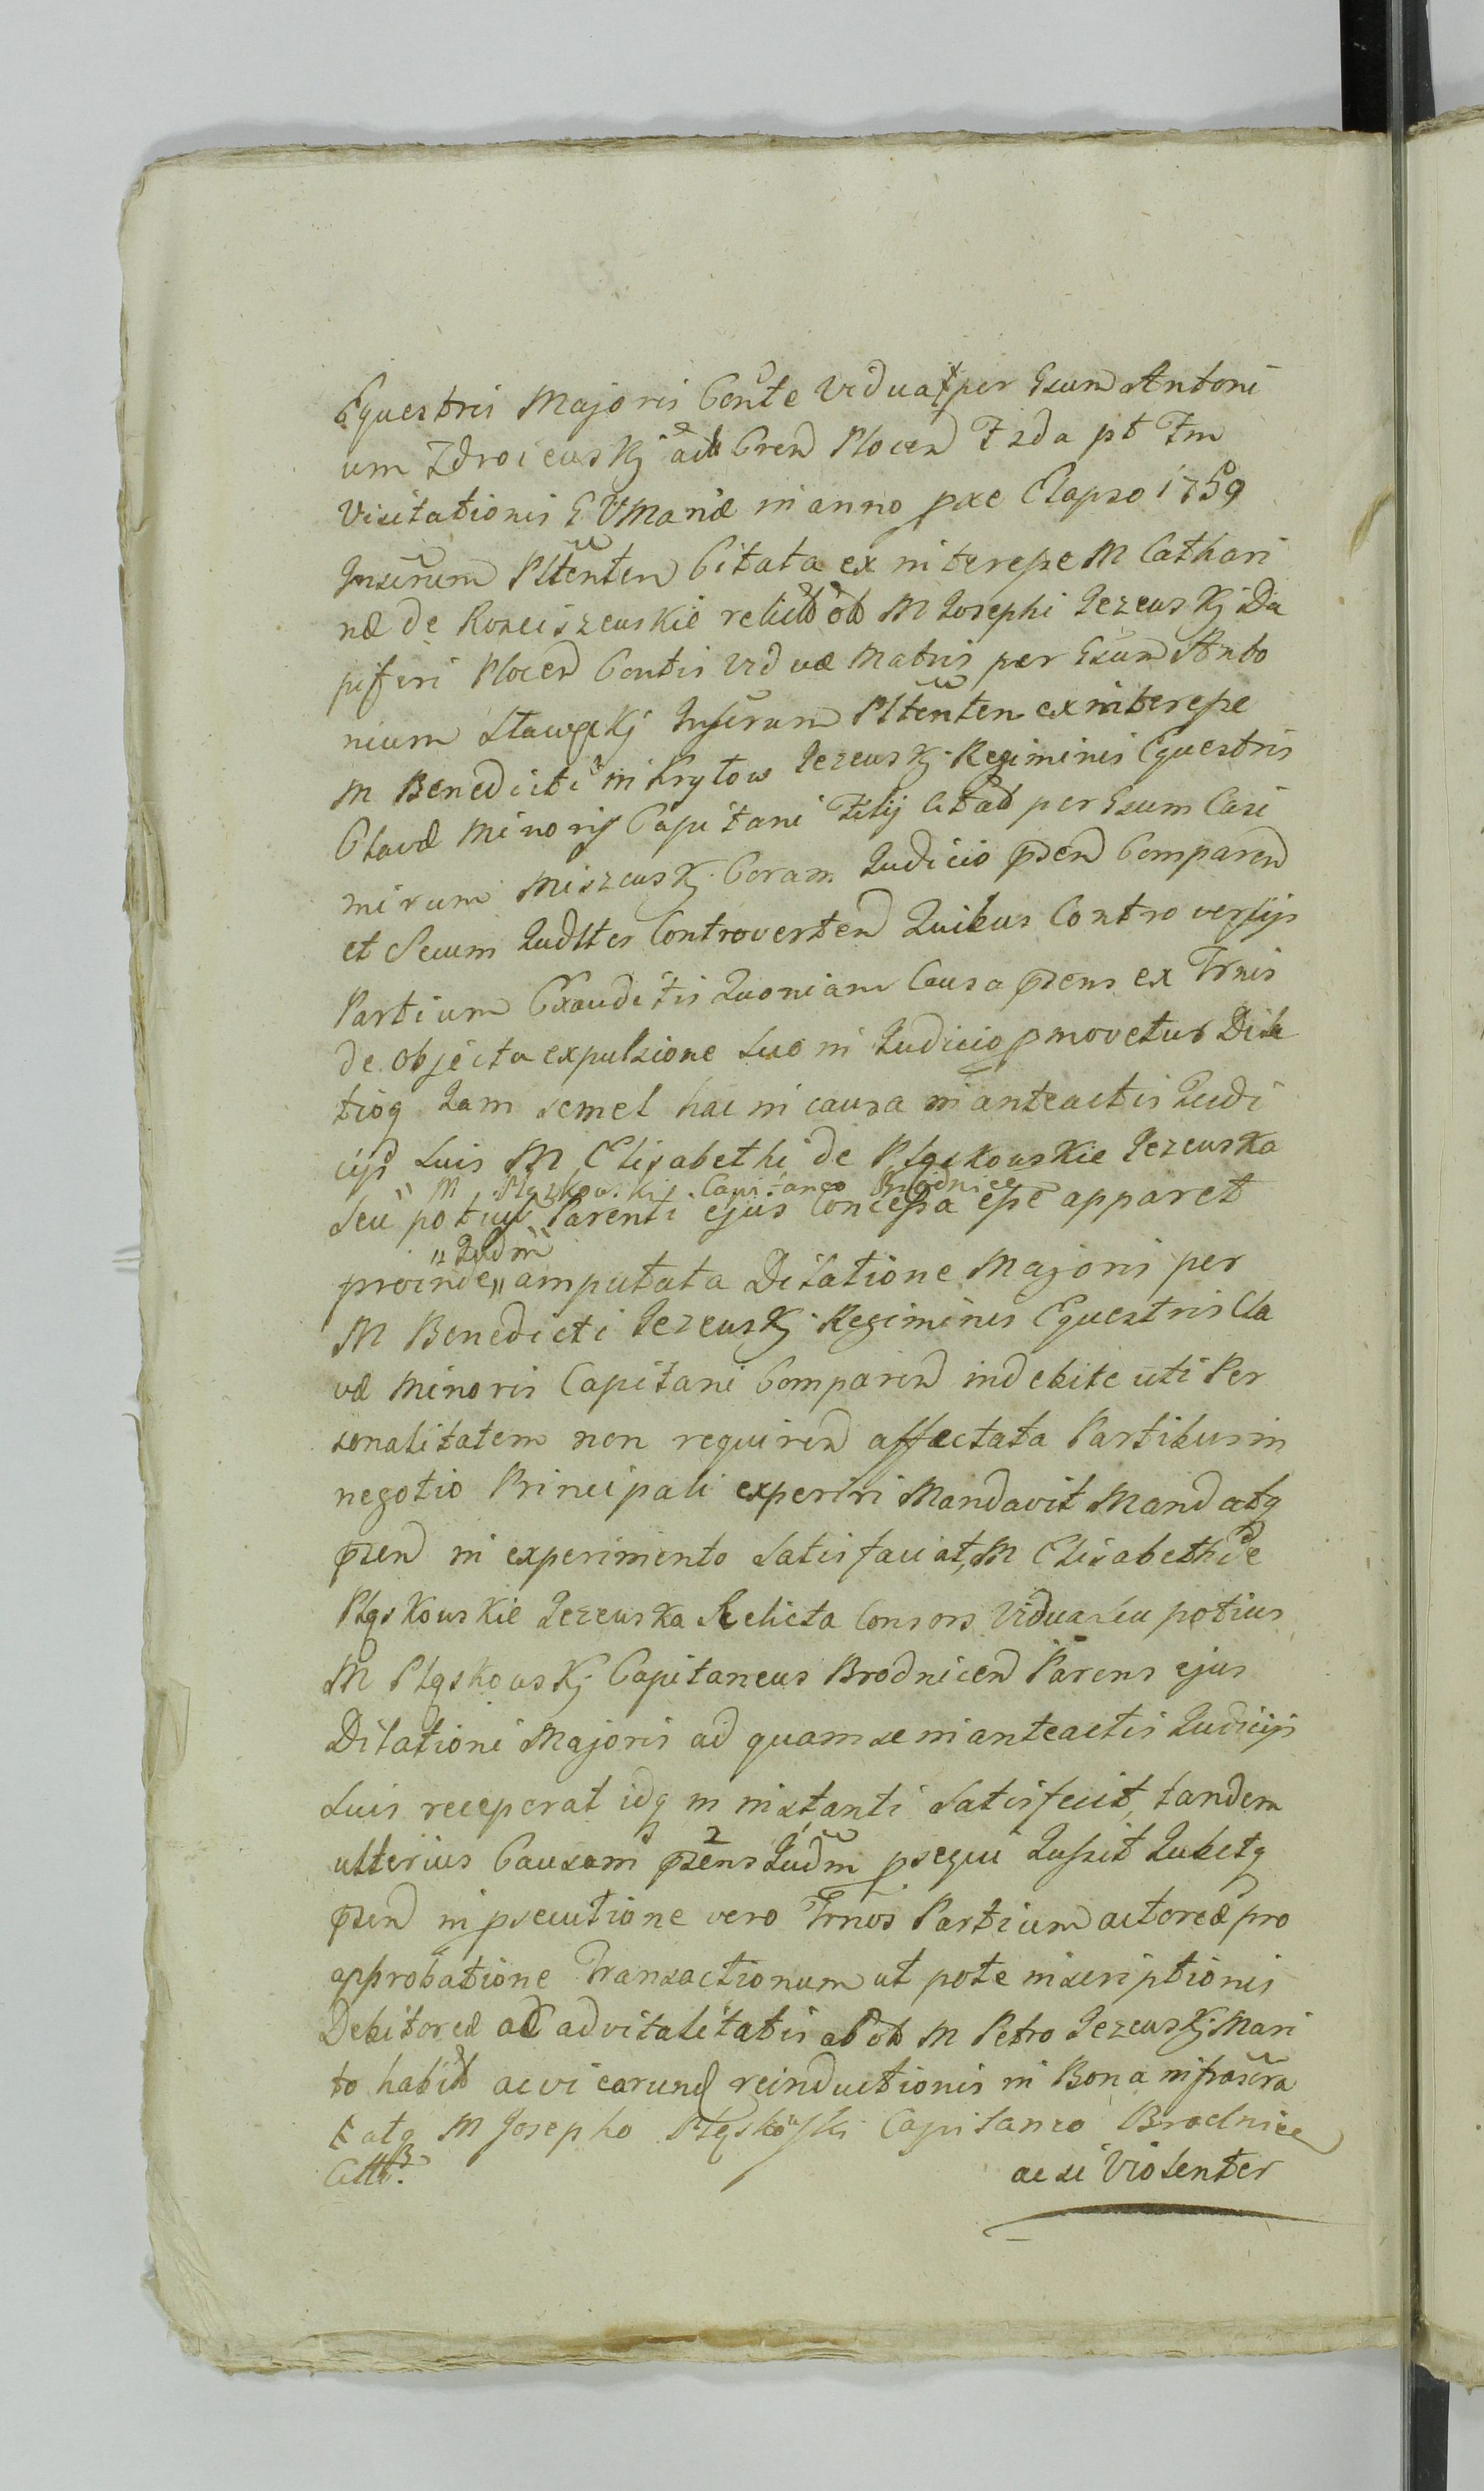 Equestris Majoris Conte Vidua per Gsum Antoni
um Zdroiewskj act Cren Plocen F 2da pt Fm
Visitationis B V Mariæ in anno pxe Elapso 1759
Inserum Pltenten Citata ex interesse M Cathari
næ de Koneiszewskie relict ob M Josephi Jezewskj Da
piferi Plocen Contis Viduæ Matris per Gsum Anto
nium Sławęckj Inserum Pltenten ex interesse
M Benedicti in Krytow Jezewskj Regiminis Equestris
Clavæ Minoris Capitani Filij Citat per Gsum Casi
mirum Miszewskj Coram Judicio psen Comparen
et Secum Judlter Controverten Quibus Controversijs
Partium Exauditis Quoniam Causa psens ex Trnis
de objecta expulsione suo in Judicio pmovetur Dila
tioq Jam semel hac in causa in anteactis Judi
cijs suis M Elisabethi de Pląskowskie Jezewska
" M Pląskowskij Capitaneo Brodnice
Seu potius Parenti ejus Concessa esse apparet
" Judm
proinde " amputata Dilatione Majori per
M Benedicti Jezewskj Regiminis Equestris Cla
væ Minoris Capitani Comparen indebite uti Per
sonalitatem non requiren affectata Partibus in
negotio Principali experiri Mandavit Mandatq
psen in experimento Satisfaciat, M Elisabeth de
Pląskowskie Jezewska Relicta Consors Vidua seu potius
M Pląskowskj Capitaneus Brodnicen Parens ejus
Dilationi Majoris ad quam se in anteactis Judicijs
suis receperat idq in instanti Satisfecit, tandem
ulterius Causam psens Judm psequi Jussit Jubetq
psen in psecutione vero Trnos Partium actoreæ pro
approbatione Transactionum ut pote inscriptionis
Debitoreæ ac advitalitatis ab ob M Petro Jezewskj Mari
to habit ac vi earund reinductionis in Bona infrascra
t atq M Josepho Pląskowski Capitaneo Brodnice
ac si Violenter